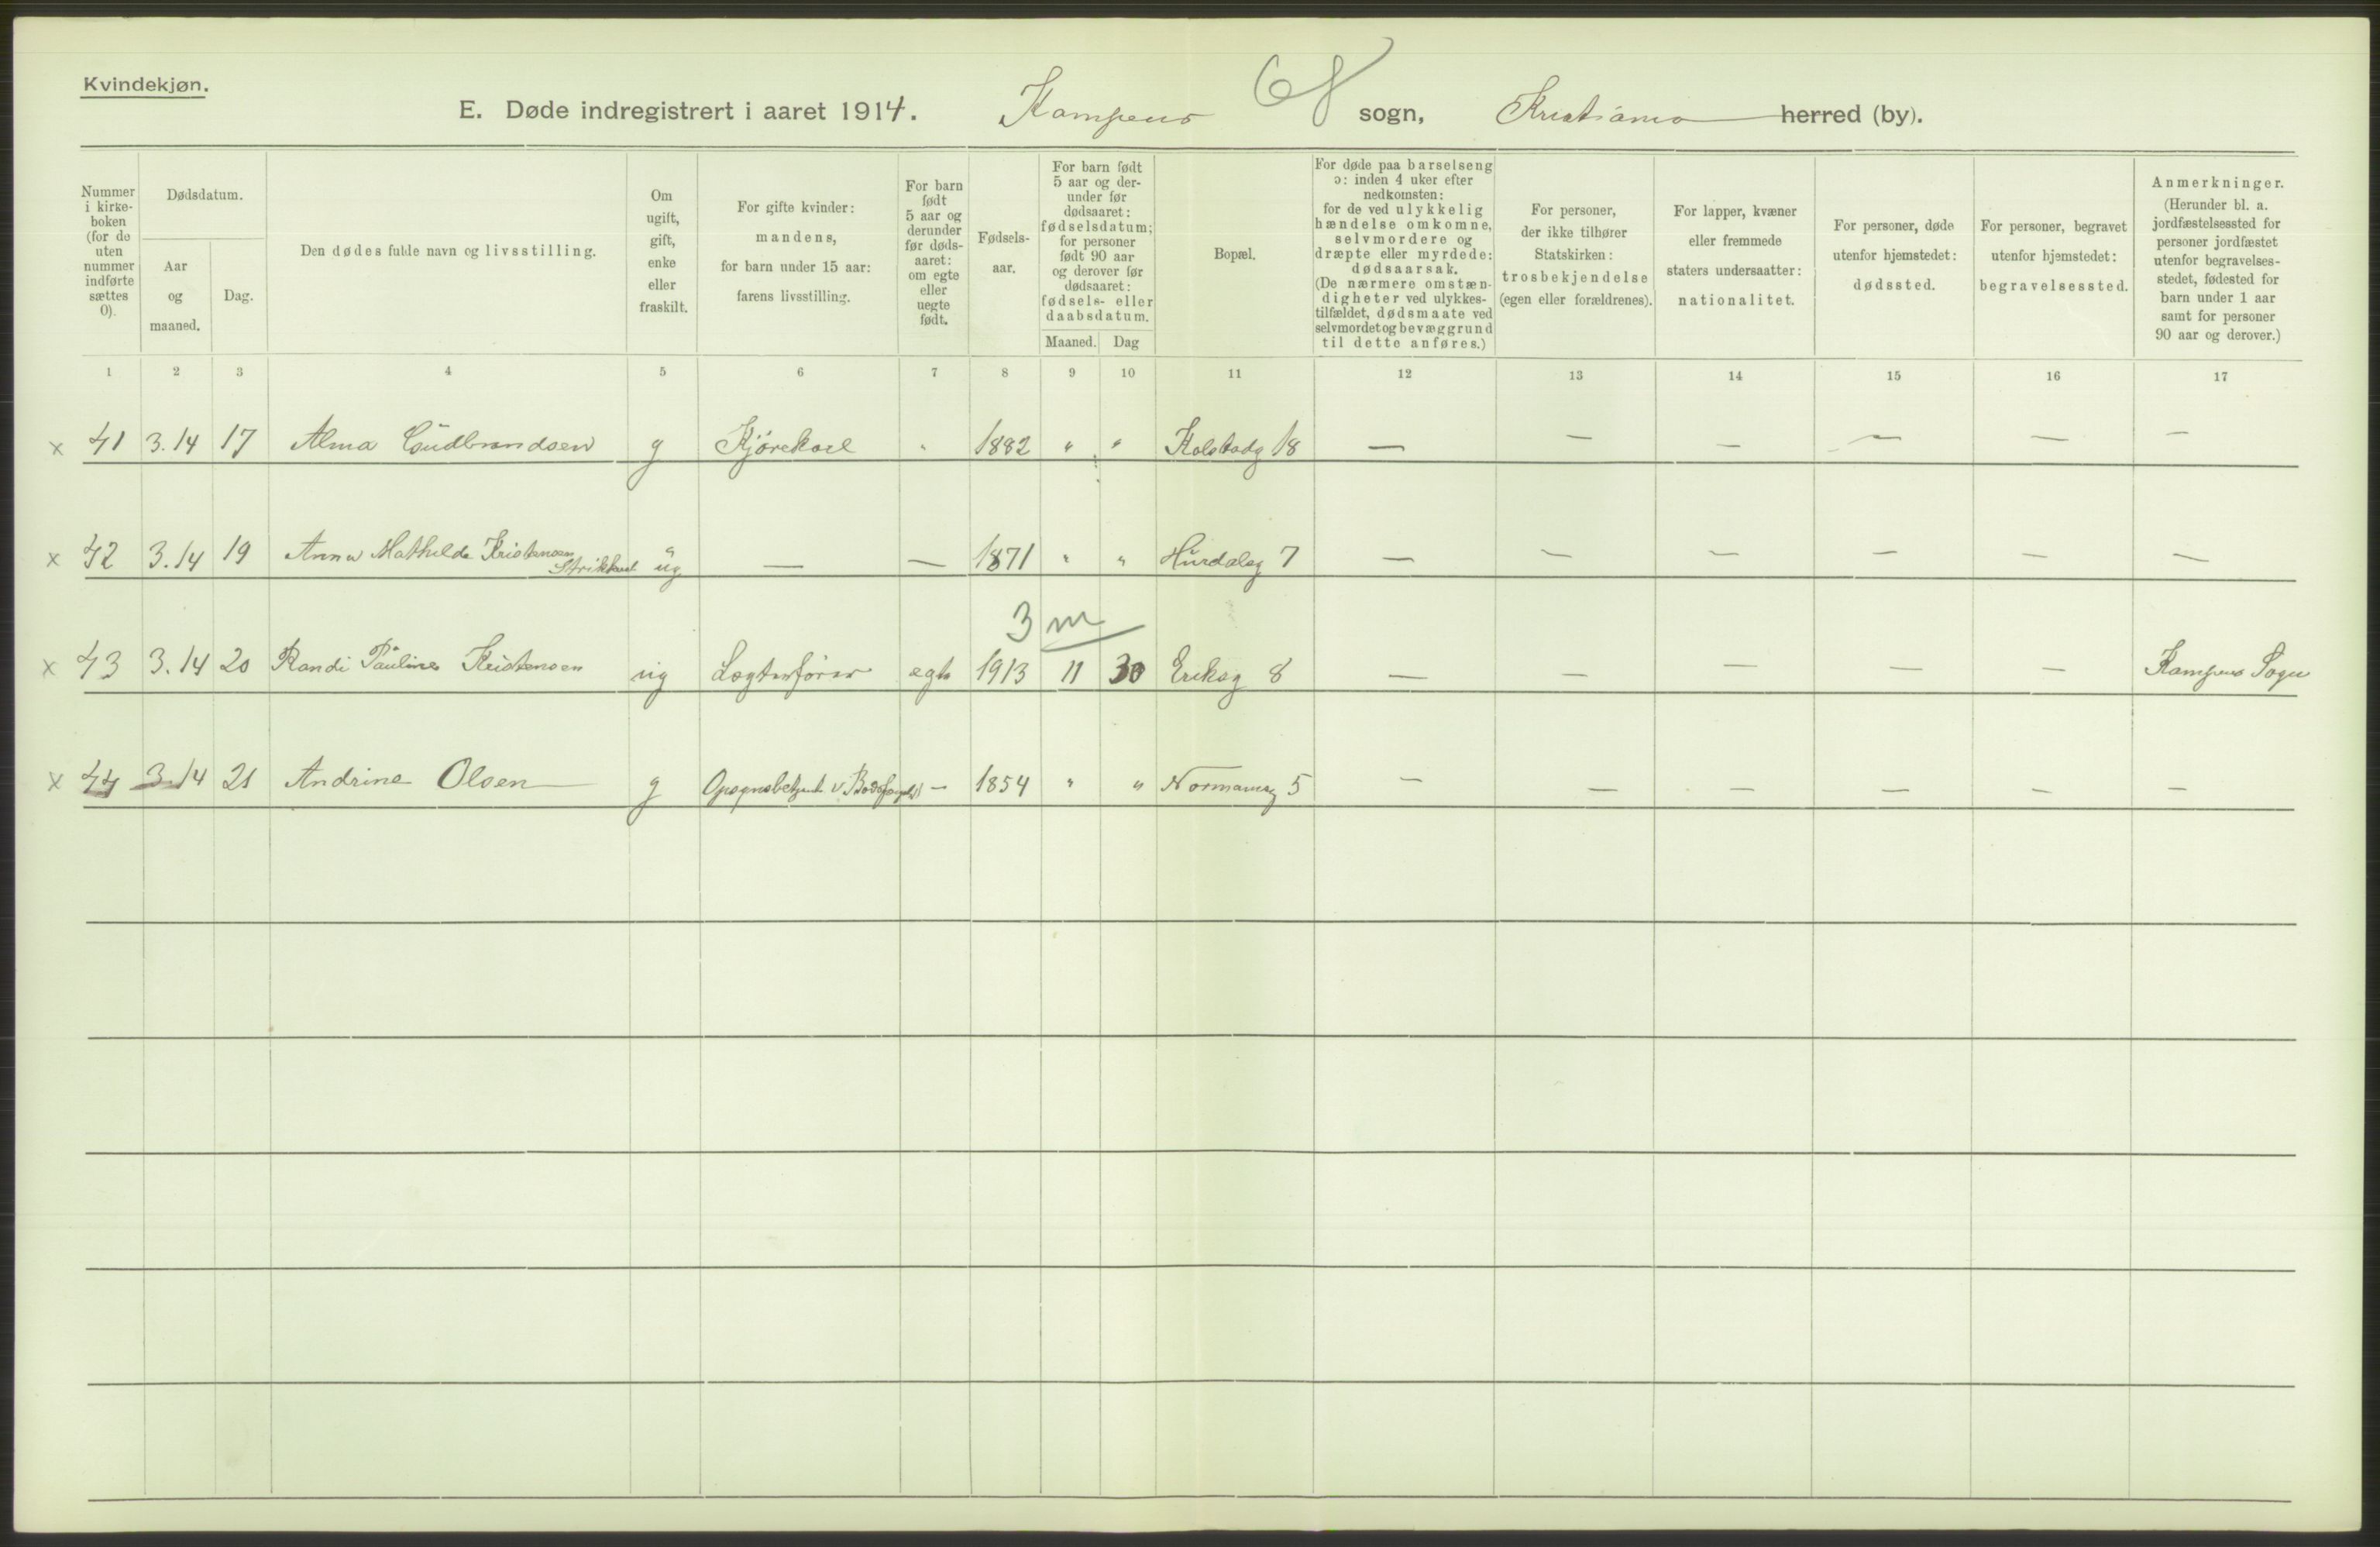 Kvindekjøn.
E. Døde indregistrert i aaret 1914. Kampens sogn, Kristiania herred (by).
Nummer i kirkeboken (for de uten nummer indførte sættes 0).
Dødsdatum.
Aar og maaned.
Dag.
Den dødes fulde navn og livsstilling.
Om ugift, gift, enke eller fraskilt.
For gifte kvinder: mandens, for barn under 15 aar: farens livsstilling.
For barn født 5 aar og derunder før dødsaaret: om egte eller uegte født.
Fødselsaar.
For barn født 5 aar og derunder før dødsaaret: fødselsdatum; for personer født 90 aar og derover før dødsaaret: fødsels- eller daabsdatum.
Maaned. Dag
Bopæl.
For døde paa barselseng ɔ: inden 4 uker efter nedkomsten: for de ved ulykkelig hændelse omkomne, selvmordere og dræpte eller myrdede: dødsaarsak. (De nærmere omstændigheter ved ulykkestilfældet, dødsmaate ved selvmordet og bevæggrund til dette anføres.)
For personer, der ikke tilhører Statskirken: trosbekjendelse (egen eller forældrenes).
For lapper, kvæner eller fremmede staters undersaatter: nationalitet.
For personer, døde utenfor hjemstedet: dødssted.
For personer, begravet utenfor hjemstedet: begravelsessted.
Anmerkninger. (Herunder bl. a. jordfæstelsessted for personer jordfæstet utenfor begravelsesstedet, fødested for barn under 1 aar samt for personer 90 aar og derover.)
1 2 3 4 5 6 7 8 9 10 11 12 13 14 15 16 17
x 41 3.14 17 Alma Gudbrandsen g Kjørekarl " 1882 " " Kolstadg 18 — — — — — —
x 42 3.14 19 Anna Mathilde Kristensen ug — — 1871 " " Hurdalsg 7 — — — — — —
3 m
x 43 3.14 20 Randi Pauline Kristensen ug Logterfører egte 1913 11 30 Eriksg 8 — — — — — Kampens Sogn
x 44 3.14 21 Andrine Olsen g Opsynsbetjent v Bodsfengslet — 1854 " " Normansg 5 — — — — — —